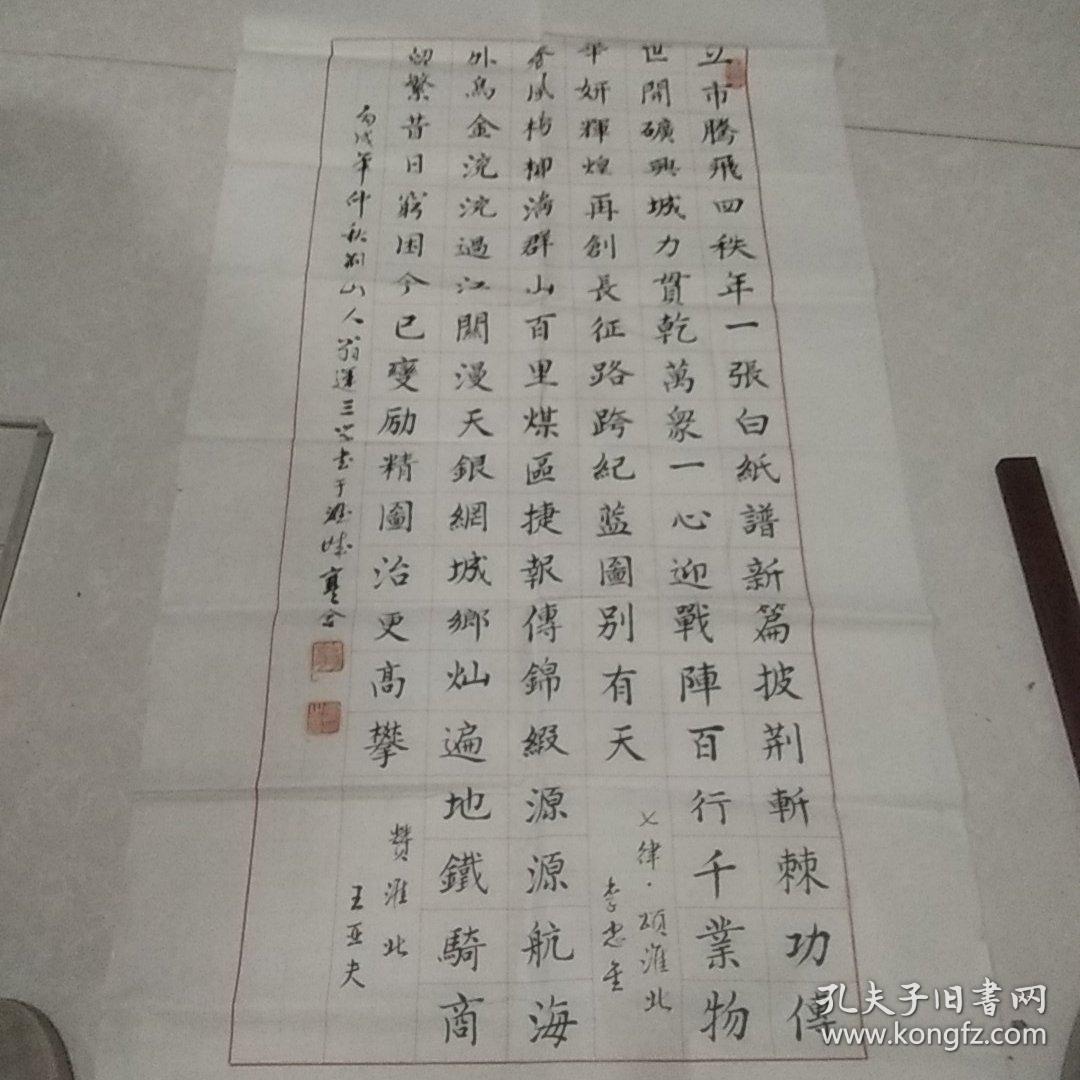 立市騰飛四秩年一張白紙譜新篇披荆斬棘功傳
世開礦興城力貫乾萬衆一心迎戰陣百行千業物
華妍輝煌再創長征路跨紀蓝圖别有天
七律·頌淮北
李忠
香風楊柳海群山百里煤區捷報傳錦緞源源航海
外烏金浣浣過江關漫天銀網城鄉灿遍地鐵騎商
繁昔日窮困今已變励精圖治更高攀
贊淮北
王亚夫
丙戌年仲秋荆山人翁運三書于濉城寒舍
孔夫子旧書网
www.kongfz.com